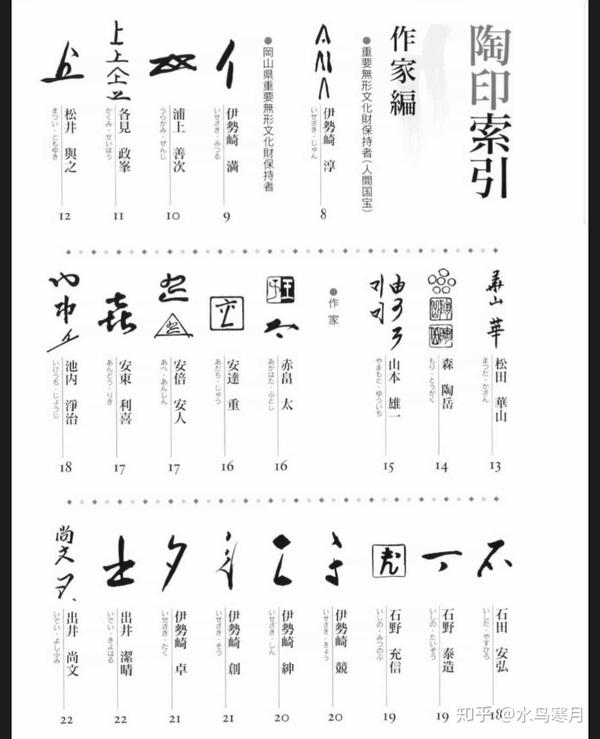 陶印索引
作家編
●重要無形文化財保持者(人間国宝)
伊勢崎 淳
いせざき・じゅん
8
●岡山県重要無形文化財保持者
伊勢崎 満
いせざき・みつる
9
浦上 善次
うらかみ・ぜんじ
10
各見 政峯
かくみ・せいほう
11
松井 與之
まつい・ともゆき
12
松田 華山
まつだ・かざん
13
森 陶岳
もり・とうがく
14
山本 雄一
やまもと・ゆういち
15
●作家
赤畠 太
あかはた・ふとし
16
安達 重
あだち・じゅう
16
安倍 安人
あべ・あんじん
17
安東 利喜
あんどう・りき
17
池内 淨治
いけうち・じょうじ
18
石田 安弘
いしだ・やすひろ
18
石野 泰造
いしの・たいぞう
19
石野 充信
いしの・みつのぶ
19
伊勢崎 競
いせざき・きょう
20
伊勢崎 紳
いせざき・しん
20
伊勢崎 創
いせざき・そう
21
伊勢崎 卓
いせざき・たく
21
出井 潔晴
いでい・きよはる
22
出井 尚文
いでい・よしふみ
22
知乎 @水鸟寒月